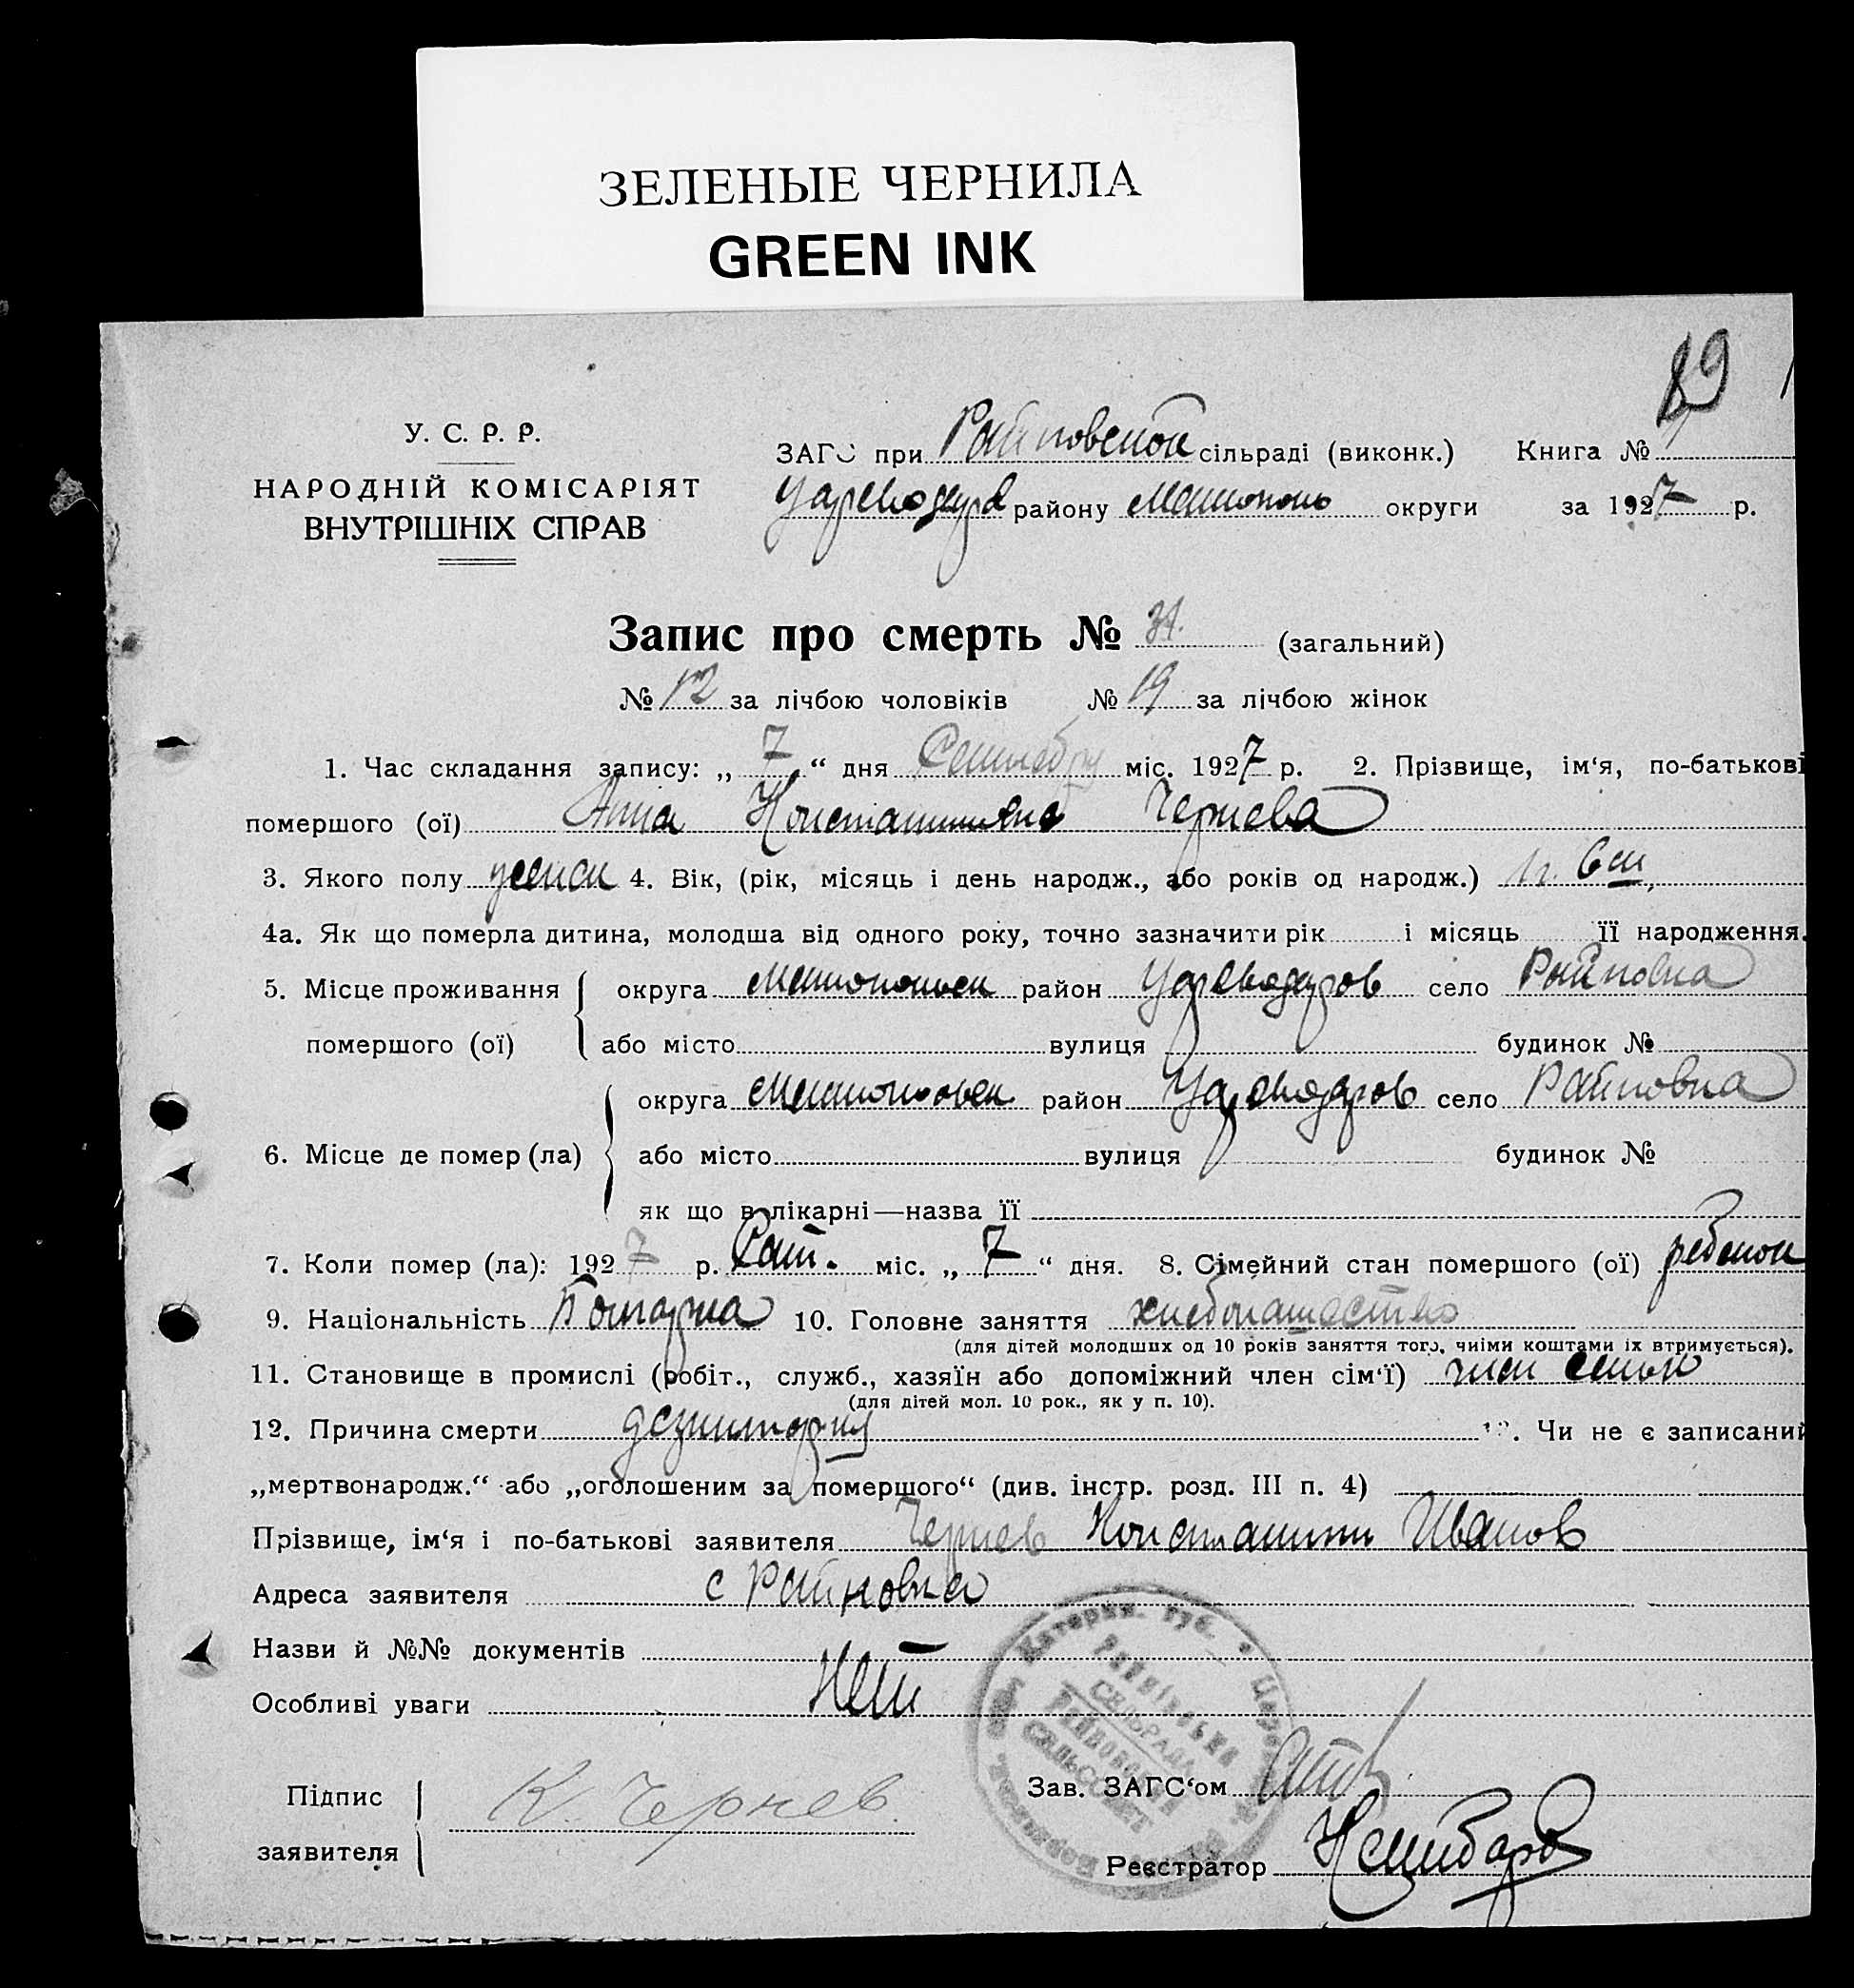 ЗЕЛЕНЫЕ ЧЕРНИЛА
GREEN INK
89
У. С. Р. Р.
НАРОДНІЙ КОМІСАРІЯТ
ВНУТРІШНІХ СПРАВ
ЗАГС при Райновской сільраді (виконк.) Книга №
району округи за 1927 р.
Запис про смерть № 31. (загальний)
№ 12 за лічбою чоловіків № 19 за лічбою жінок
1. Час складання запису: „ 7 “ дня Сентября міс. 1927 р. 2. Прізвище, ім‘я, по-батькові
помершого (ої) Анна Константиновна Чернева
3. Якого полу женск 4. Вік, (рік, місяць і день народж., або років од народж.) 1 г. 6 м,
4а. Як що померла дитина, молодша від одного року, точно зазначити рік і місяць її народження.
5. Місце проживання помершого (ої) округа район село Райновка
або місто вулиця будинок №
6. Місце де помер (ла) округа район село Райновка
або місто вулиця будинок №
як що в лікарні—назва її
7. Коли помер (ла): 1927 р. Сент. міс. „ 7 “ дня. 8. Сімейний стан помершого (ої) ребенок
9. Національність Болгарка 10. Головне заняття хлебопашество
(для дітей молодших од 10 років заняття того, чиїми коштами їх втримується).
11. Становище в промислі (робіт., служб., хазяїн або допоміжний член сім‘ї) член семьи
(для дітей мол. 10 рок., як у п. 10).
12. Причина смерти дезинтория 13. Чи не є записаний
„мертвонародж.“ або „оголошеним за помершого“ (див. інстр. розд. III п. 4)
Прізвище, ім‘я і по-батькові заявителя Чернев Константин Иванов
Адреса заявителя с Райновка
Назви й №№ документів
Особливі уваги Нет
Підпис заявителя К. Чернев.
Зав. ЗАГС‘ом
Реєстратор
СЕЛЬРАДА
РАЙНОВСКИЙ
СЕЛЬСОВЕТ